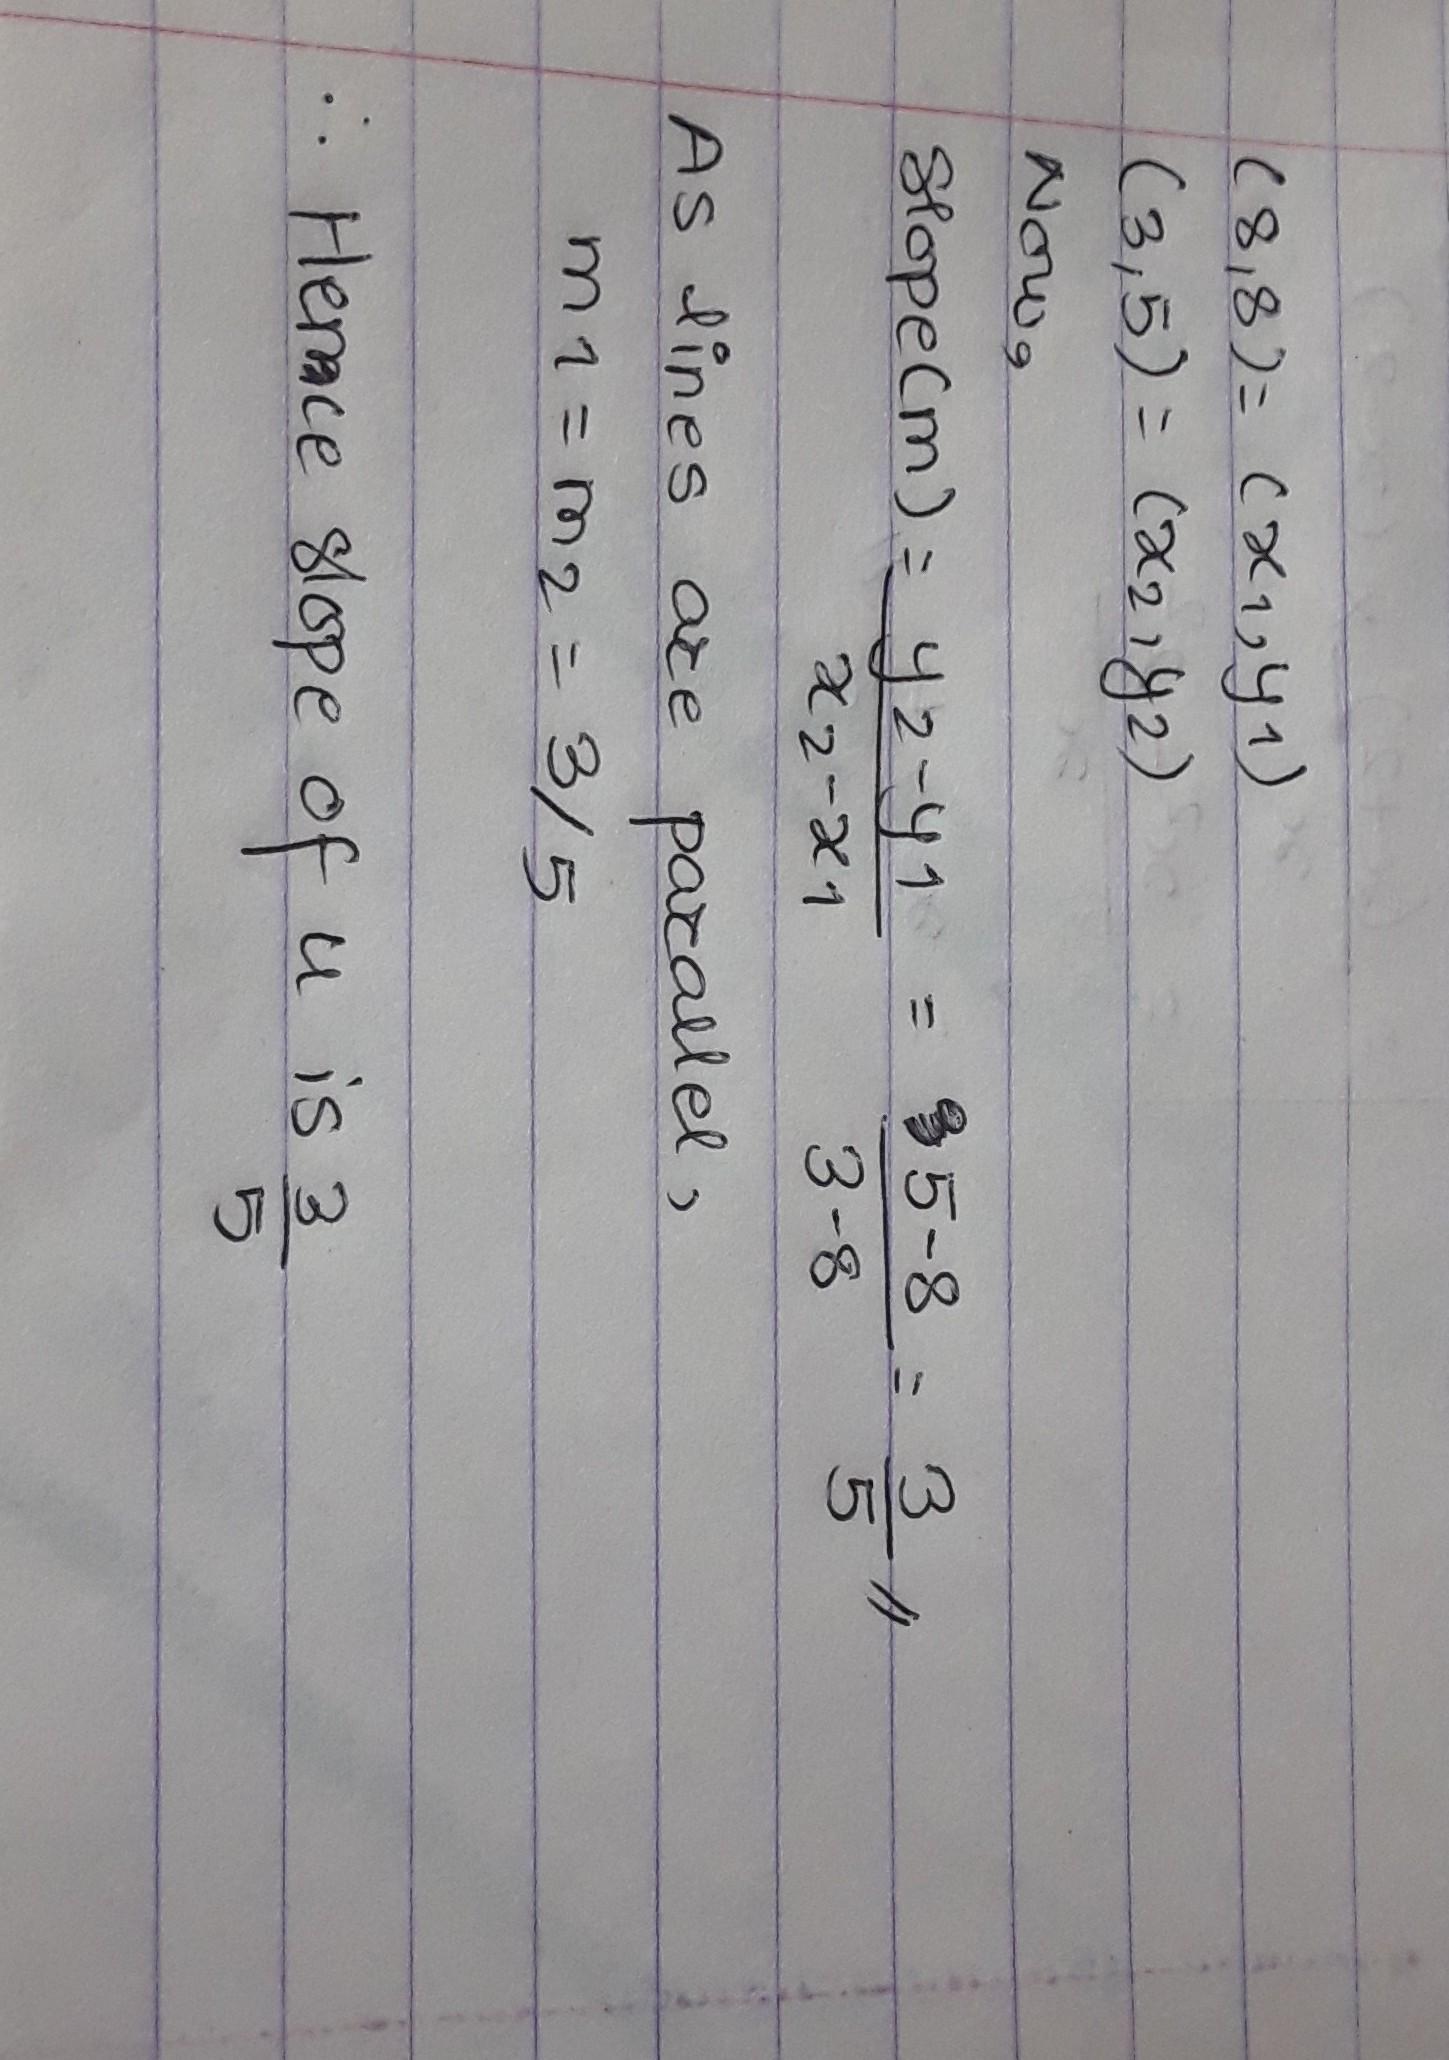 (8,8) = (x1,y1)
(3,5) = (x2,y2)
Now,
Slope(m) = y2-y1 / x2-x1 = 5-8 / 3-8 = 3/5 //
As lines are parallel,
m1 = m2 = 3/5
∴ Hence slope of u is 3/5